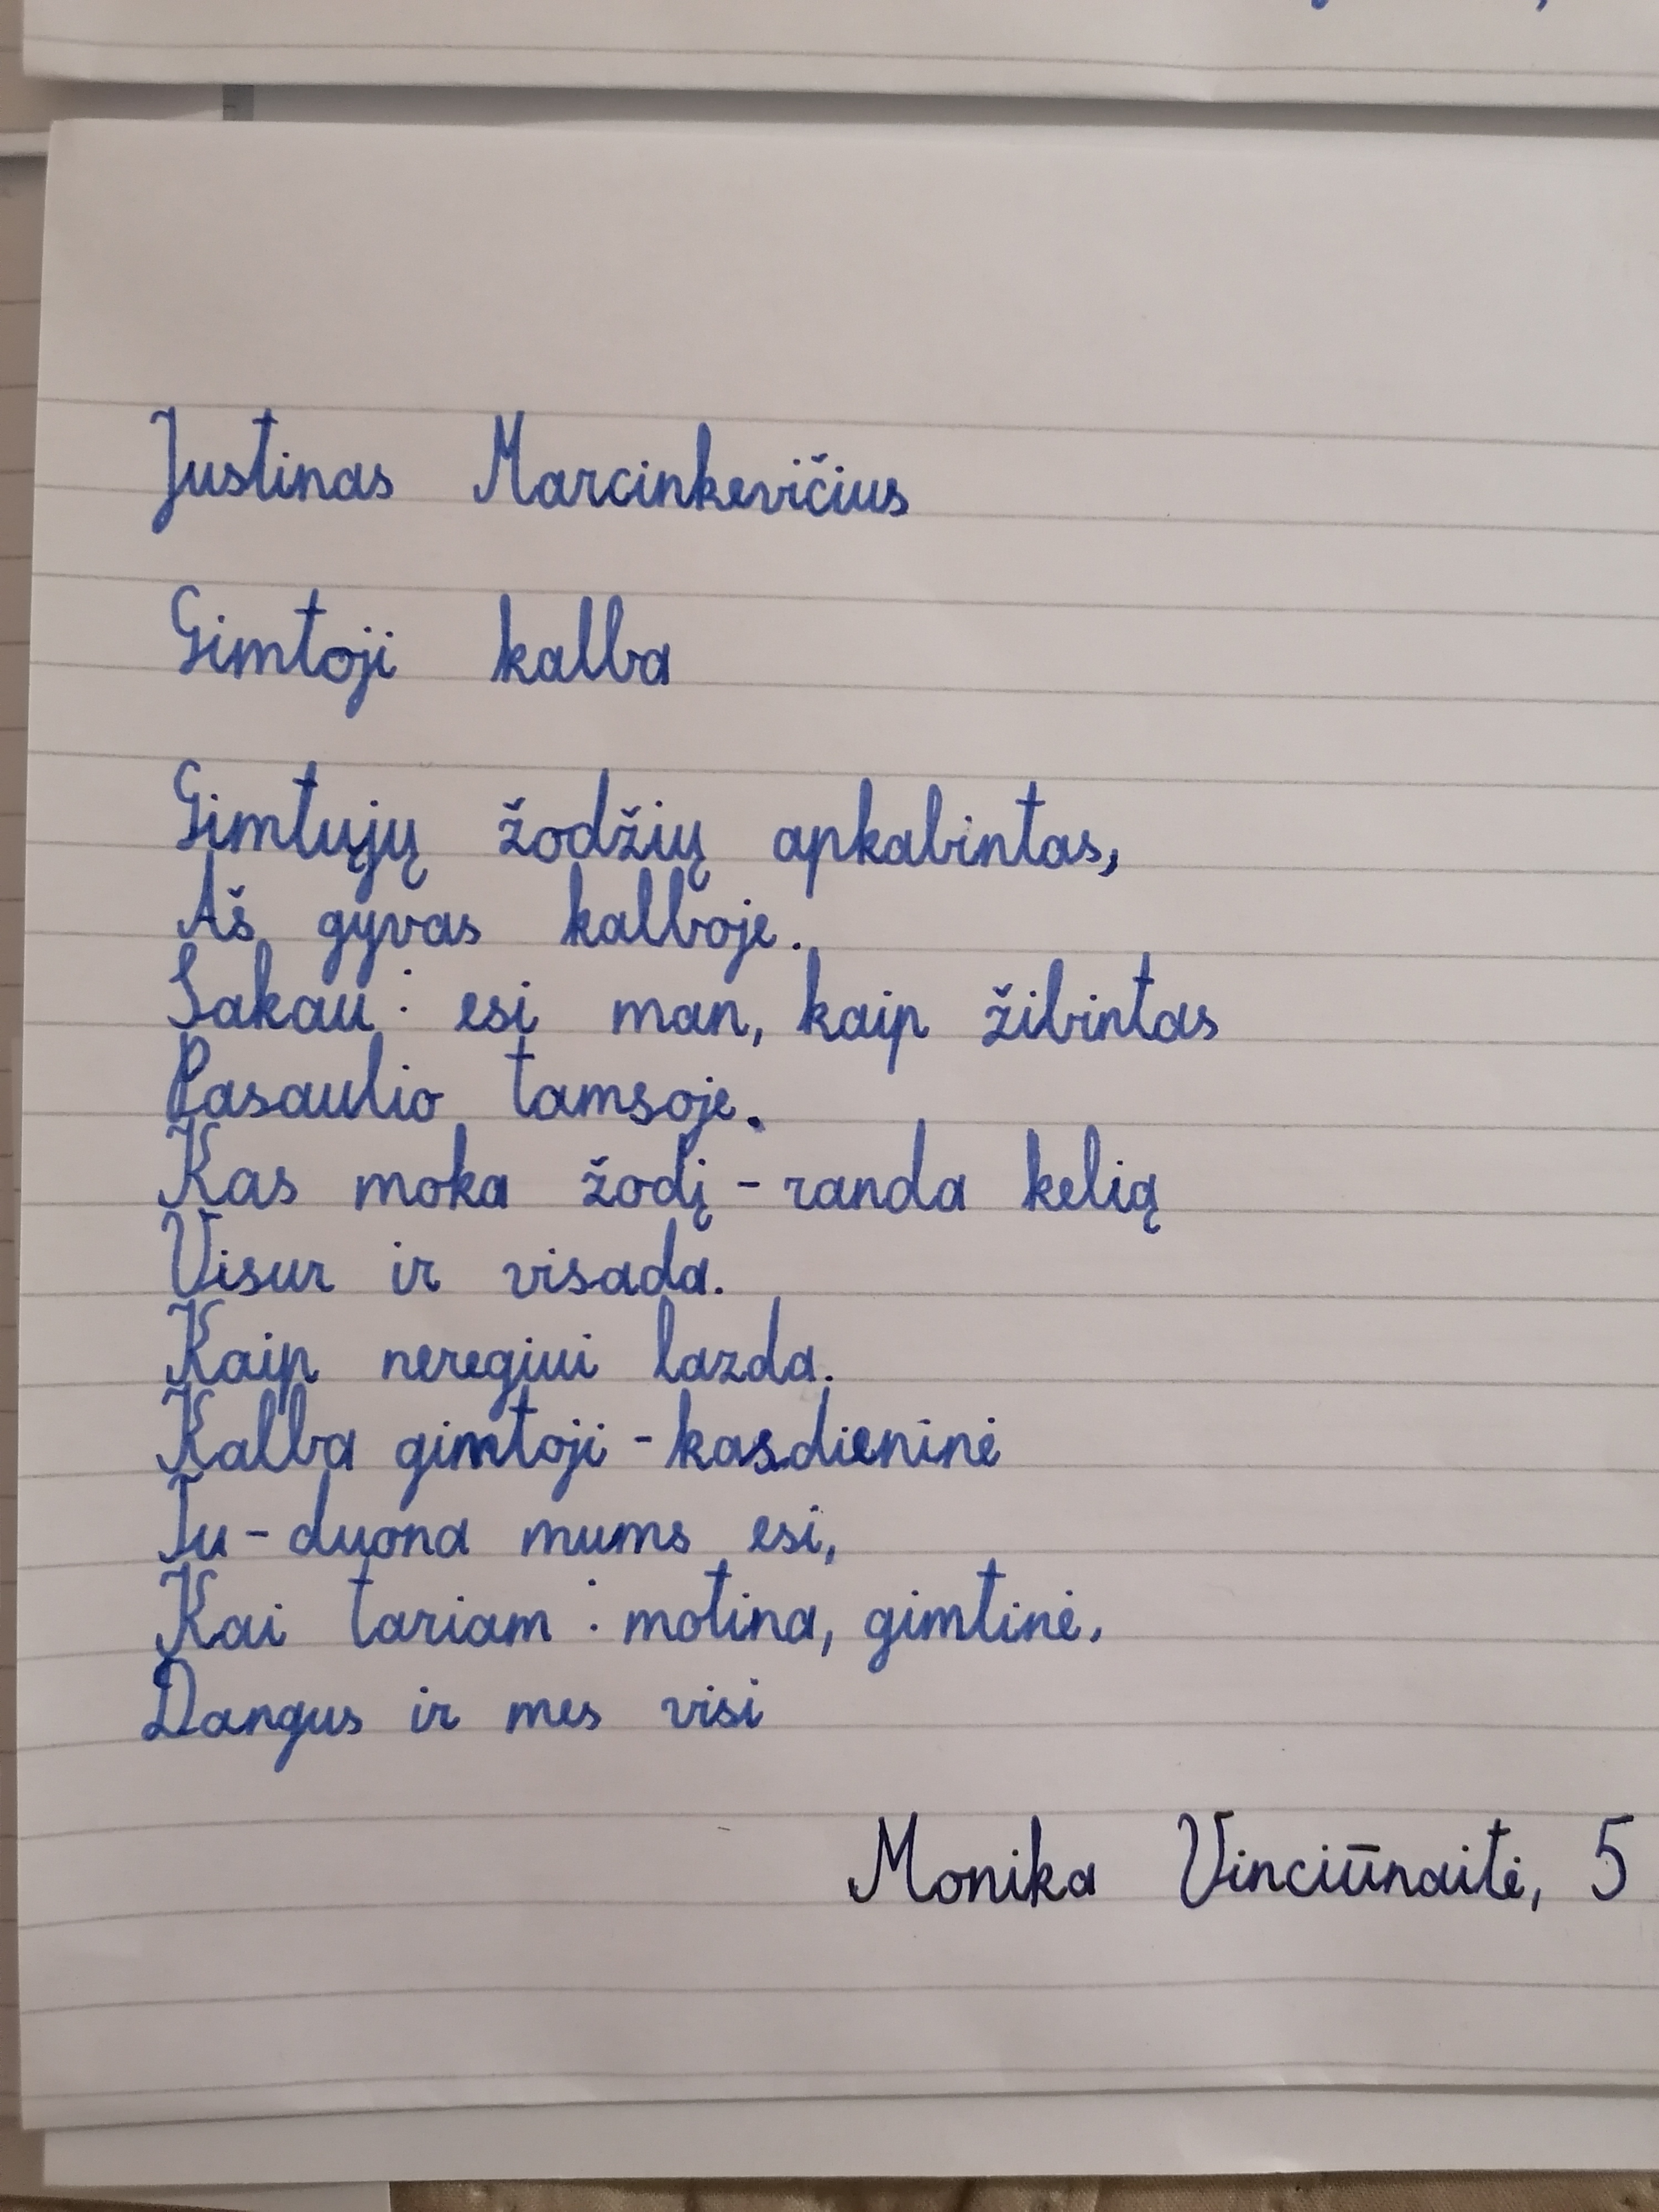 Justinas Marcinkevičius
Gimtoji kalba
Gimtųjų žodžių apkabintas,
Aš gyvas kalboje.
Sakau: esi man, kaip žibintas
Pasaulio tamsoje.
Kas moka žodį - randa kelią
Visur ir visada.
Kaip neregiui lazda.
Kalba gimtoji - kasdieninė
Tu - duona mums esi,
Kai tariam: motina, gimtinė,
Dangus ir mes visi
Monika Vinciūnaitė, 5